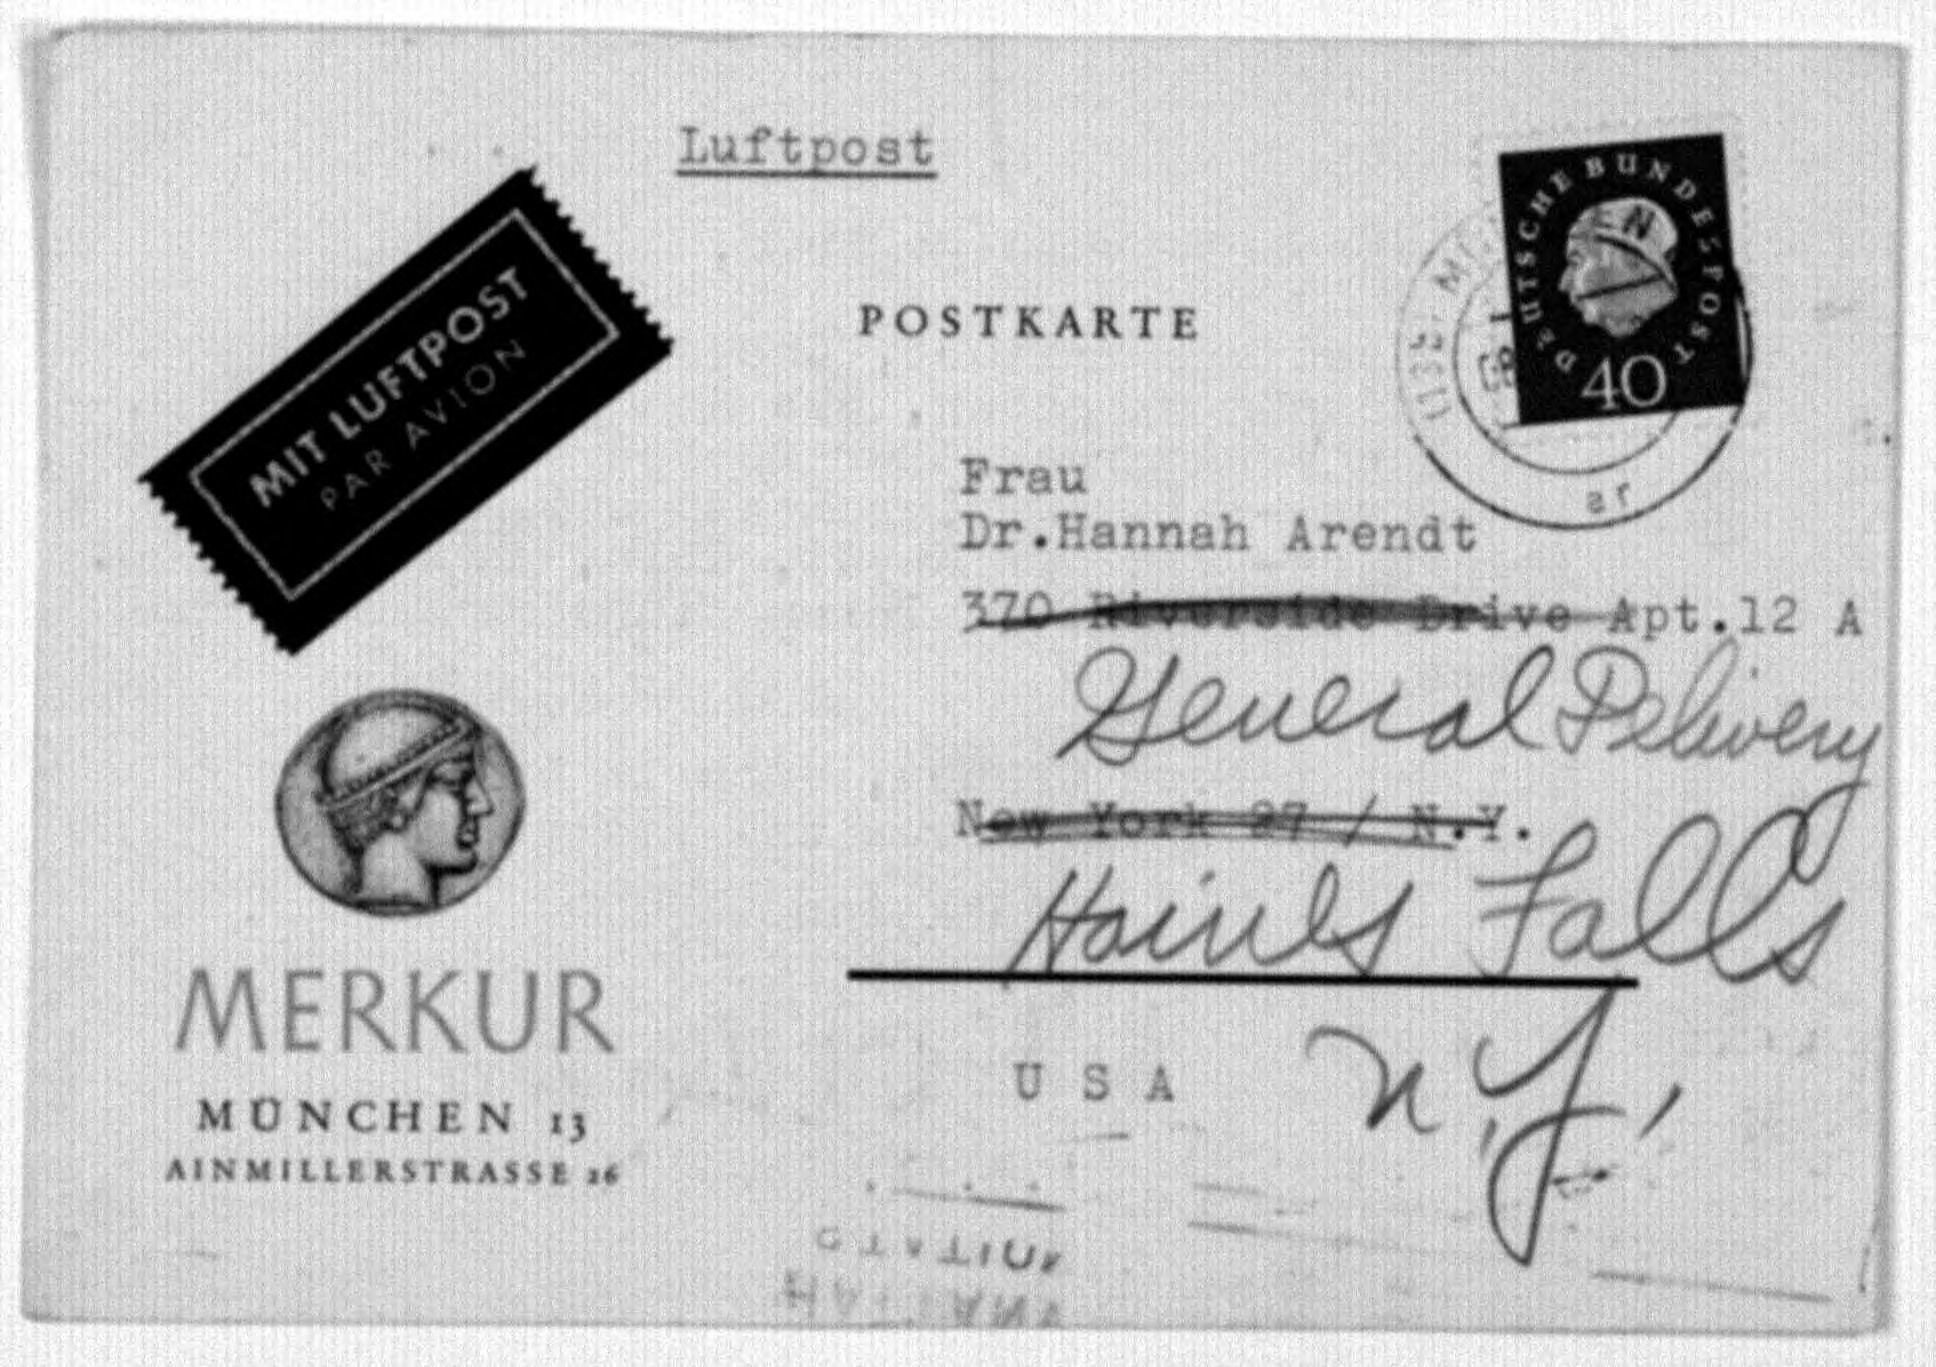 Luftpost
MIT LUFTPOST
PAR AVION
DEUTSCHE BUNDESPOST
40
POSTKARTE
Frau
Dr.Hannah Arendt
370 Riverside Drive Apt.12 A
General Delivery
New York 27 / N.Y.
Haines Falls
N.Y.
U S A
MERKUR
MÜNCHEN 13
AINMILLERSTRASSE 26